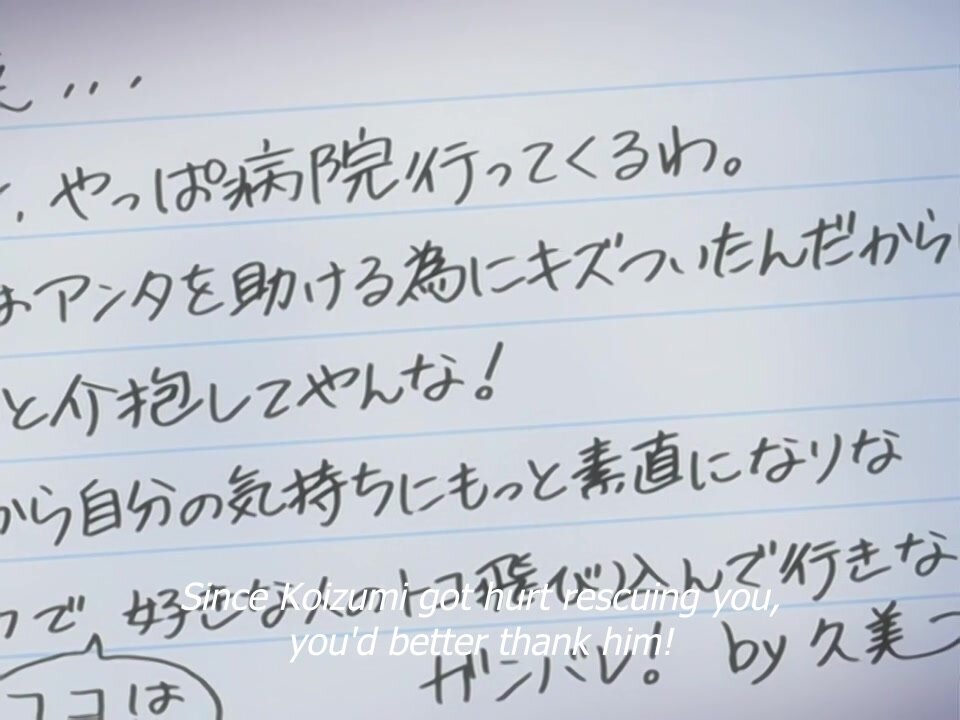 ...
やっぱ病院行ってくるわ。
アンタを助ける為にキズついたんだから
と介抱してやんな!
から自分の気持ちにもっと素直になりな
で 好きな人のトコ飛び込んで行きな
ココは
ガンバレ! by 久美つ
Since Koizumi got hurt rescuing you,
you'd better thank him!